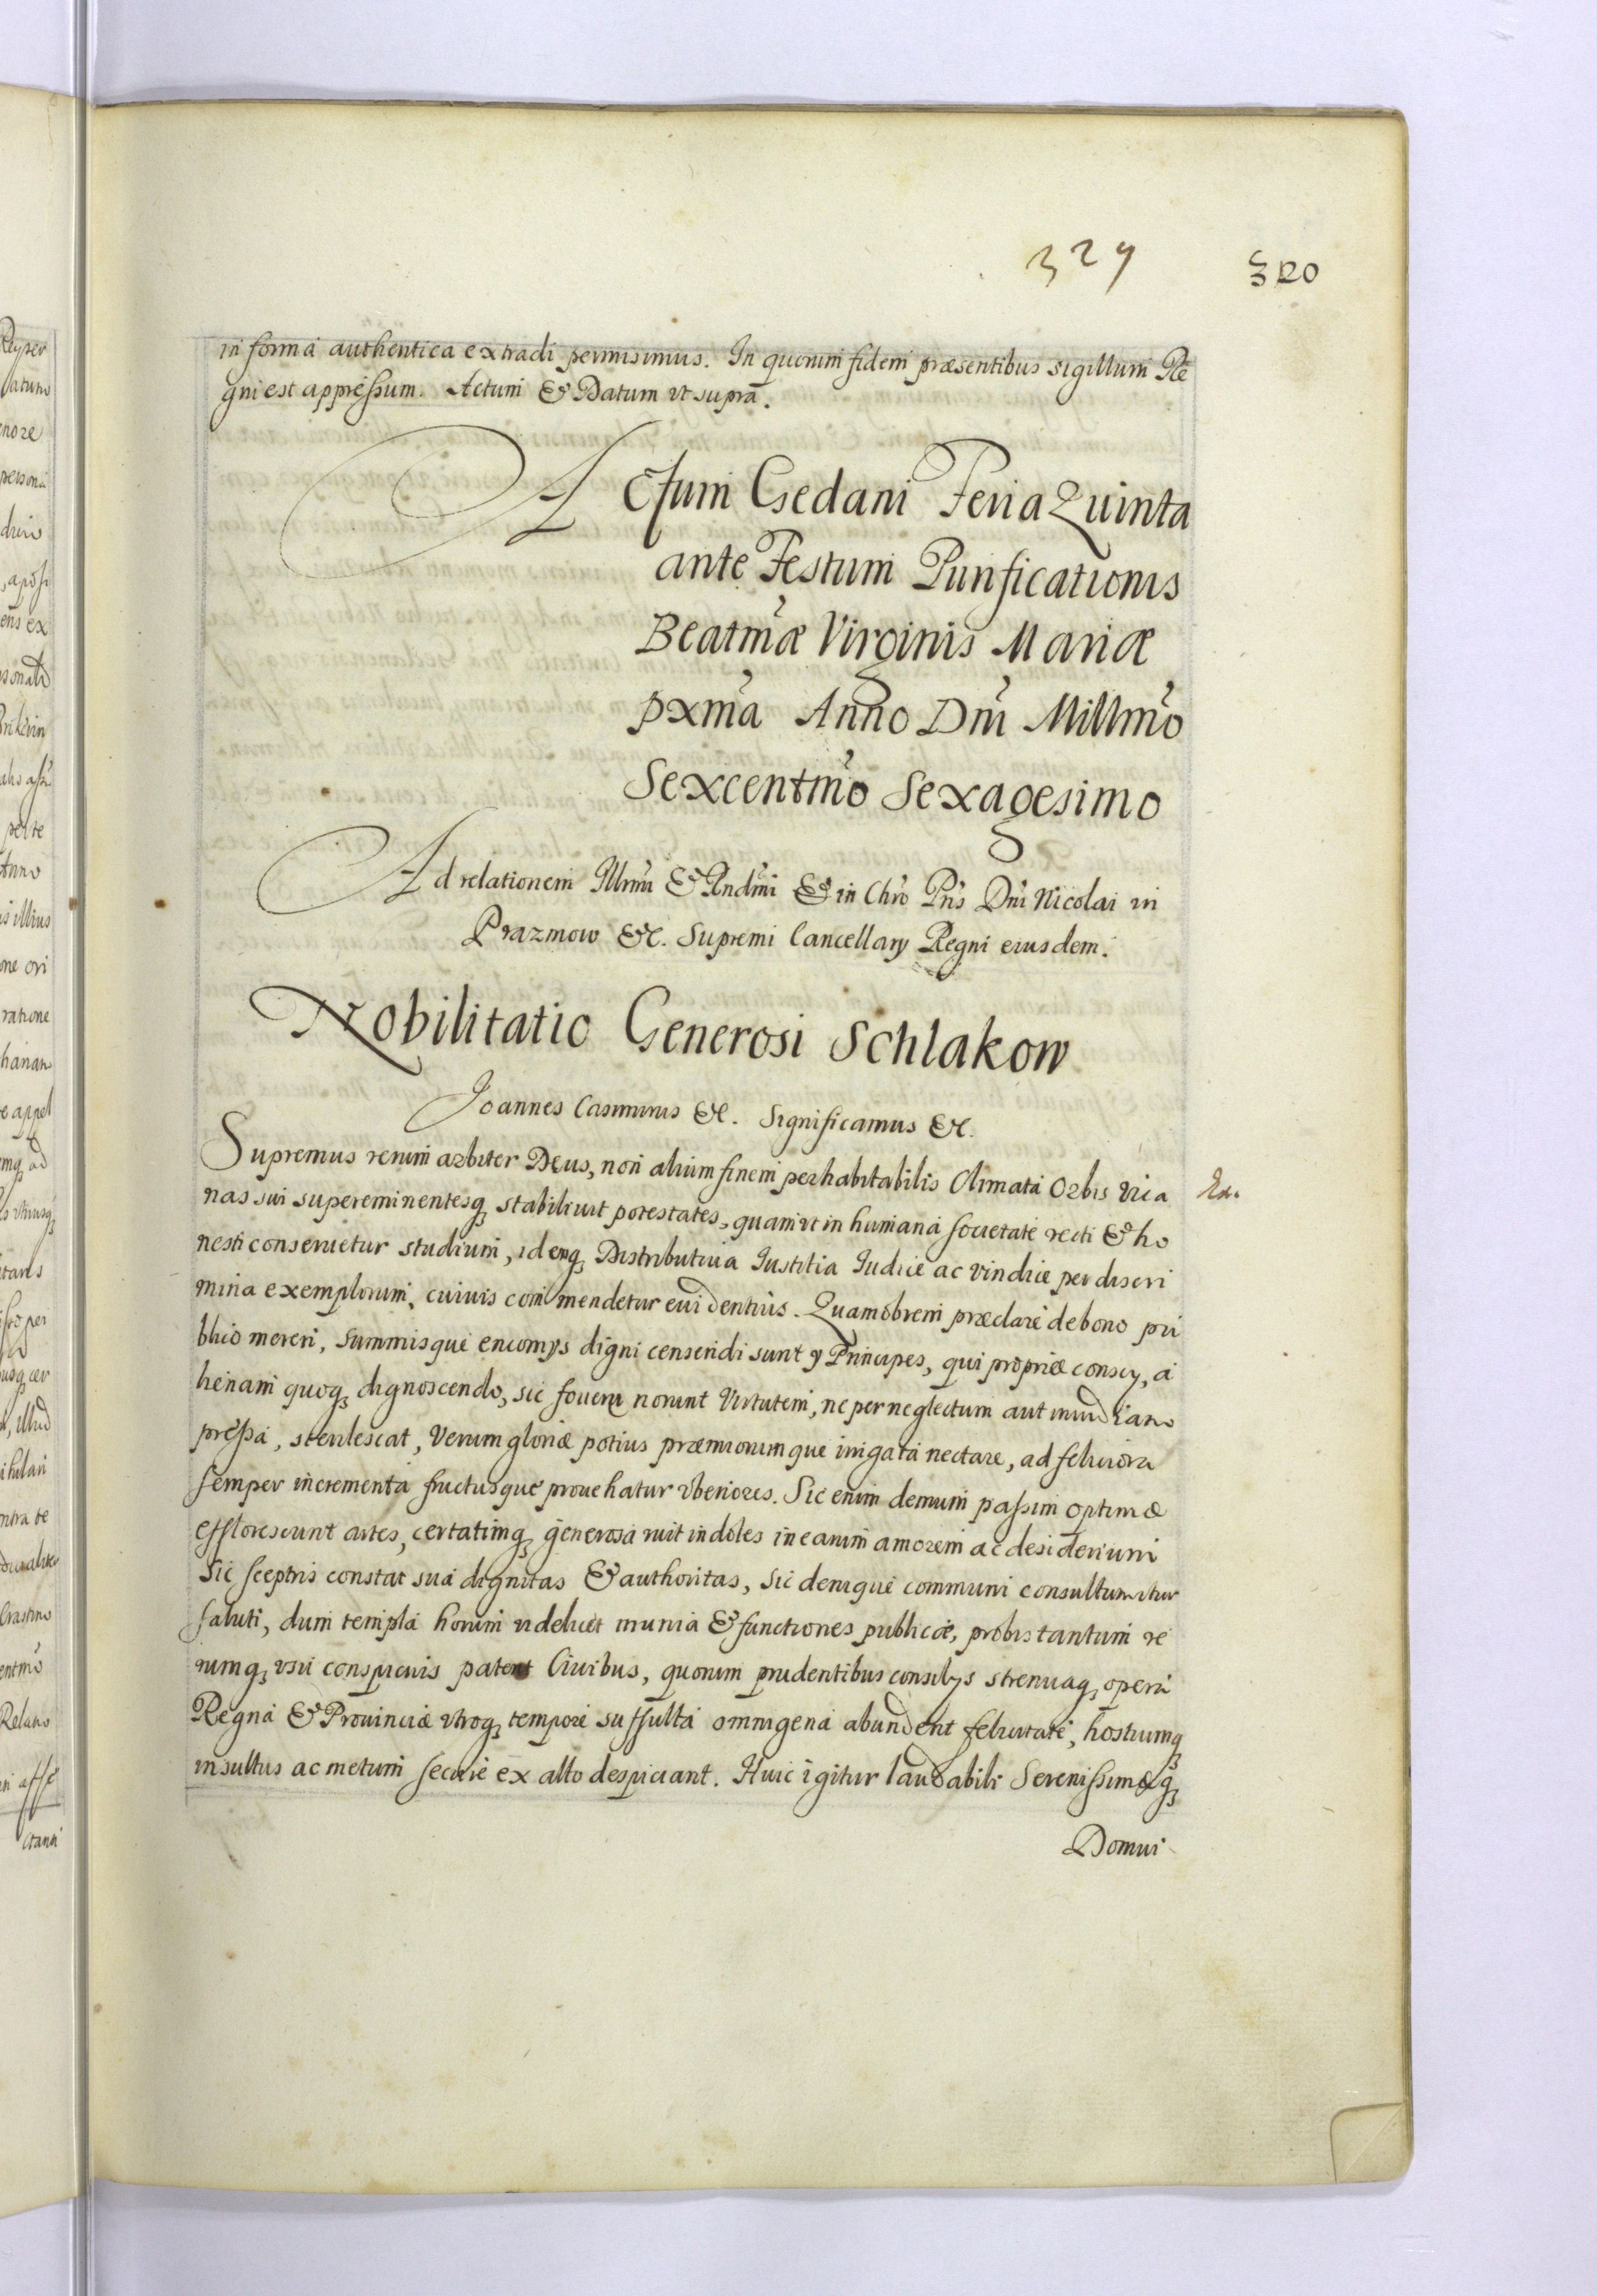 329
320
in forma authentica extradi permisimus. In quorum fidem præsentibus sigillum Re
gni est appressum. Actum & Datum ut supra.
Actum Gedani Feria Quinta
ante Festum Purificationis
Beatmæ Virginis Mariæ
pxma Anno Dni Millmo
Sexcentmo Sexagesimo
Ad relationem Illrmi & Rndmi & in Chro Pris Dni Nicolai in
Prazmow &c. Supremi Cancellarÿ Regni eiusdem.
Nobilitatio Generosi Schlakow
Joannes Casimirus &c. Significamus &c.
Supremus rerum arbiter Deus, non alium finem per habitabilis Climata Orbis Vica
nas sui supereminentesq, stabiliuit potestates, quam ut in humana societate recti & ho
nesti conseruetur studium, idemq, Distributiua Justitia Judice ac vindice per discri
mina exemplorum, cuiuis commendetur euidentius. Quamobrem præclare de bono pu
blico mereri, summisque encomÿs digni censendi sunt ÿ Principes, qui propriæ conscÿ, a
lienam quoq, dignoscendo, sic fouere norunt Virtutem, ne per neglectum aut inuidiam
pressa, sterilescat, Verum gloriæ potius præmiorumque irrigata nectare, ad feliciora
semper incrementa fructusque prouehatur vberiores. Sic enim demum passim optimæ
efflorescunt artes, certatimq, generosa ruit indoles in earum amorem ac desiderium
Sic sceptris constat sua dignitas & authoritas, Sic denique communi consultum itur
saluti, dum templa horum videlicet munia & functiones publicæ, probis tantum re
rumq, vsu conspicuis patent Ciuibus, quorum prudentibus consilÿs strenuaq, opera
Regna & Prouinciæ vtroq, tempore suffulta omnigena abundent felicitate, hostiumq,
insultus ac metum secure ex alto despiciant. Huic igitur laudabili Serenissimæq,
Domui